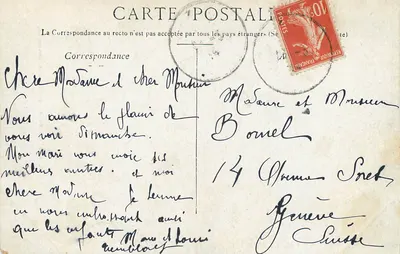 CARTE POSTALE
La Correspondance au recto n'est pas acceptée par tous les pays étrangers (Se
Correspondance
10c
Chere Madame et cher Monsieur
Nous aurons le plaisir de
vous voir dimanche.
Mon mari vous envoie ses
meilleurs amitiés. et moi
chere Madame je termine
en vous embrassant ainsi
que les enfants
Madame et Monsieur
Bornel
14
Genève
Suisse